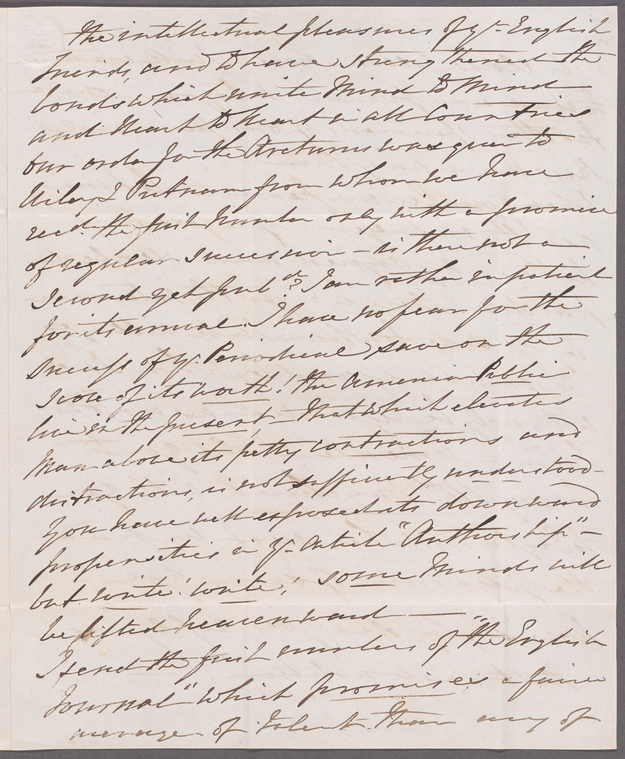 the intellectual pleasures of yr English
friends, and to have strengthened the
bonds which unite Mind to Mind
and Heart to Heart in all Countries
Our order for the Arcturus was given to
Wiley & Putnam from whom we have
recd. the first Number only with a promise
of regular succession – is there not a
second yet pubd? I am rather impatient
for its arrival. I have no fear for the
success of yr Periodical save on the
score of its worth! the American Public
live in the present – that which elevates
Man above its petty contractions and
distractions, is not sufficiently understood –
You have well exposed its downward
propensities in yr article "Authorship" –
but write! write! some Minds will
be lifted heavenward —
I send the first numbers of "the English
Journal" which promises a fairer
average of talent than any of